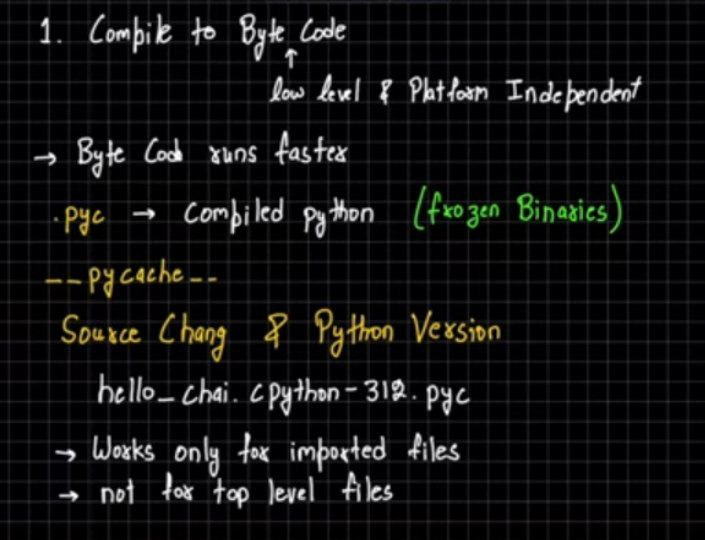 1. Compile to Byte Code
↑
low level & Platform Independent
→ Byte Cod runs faster
.pyc → compiled python (frozen Binaries)
--pycache--
Source Chang & Python Version
hello_chai.cpython-312.pyc
→ Works only for imported files
→ not for top level files